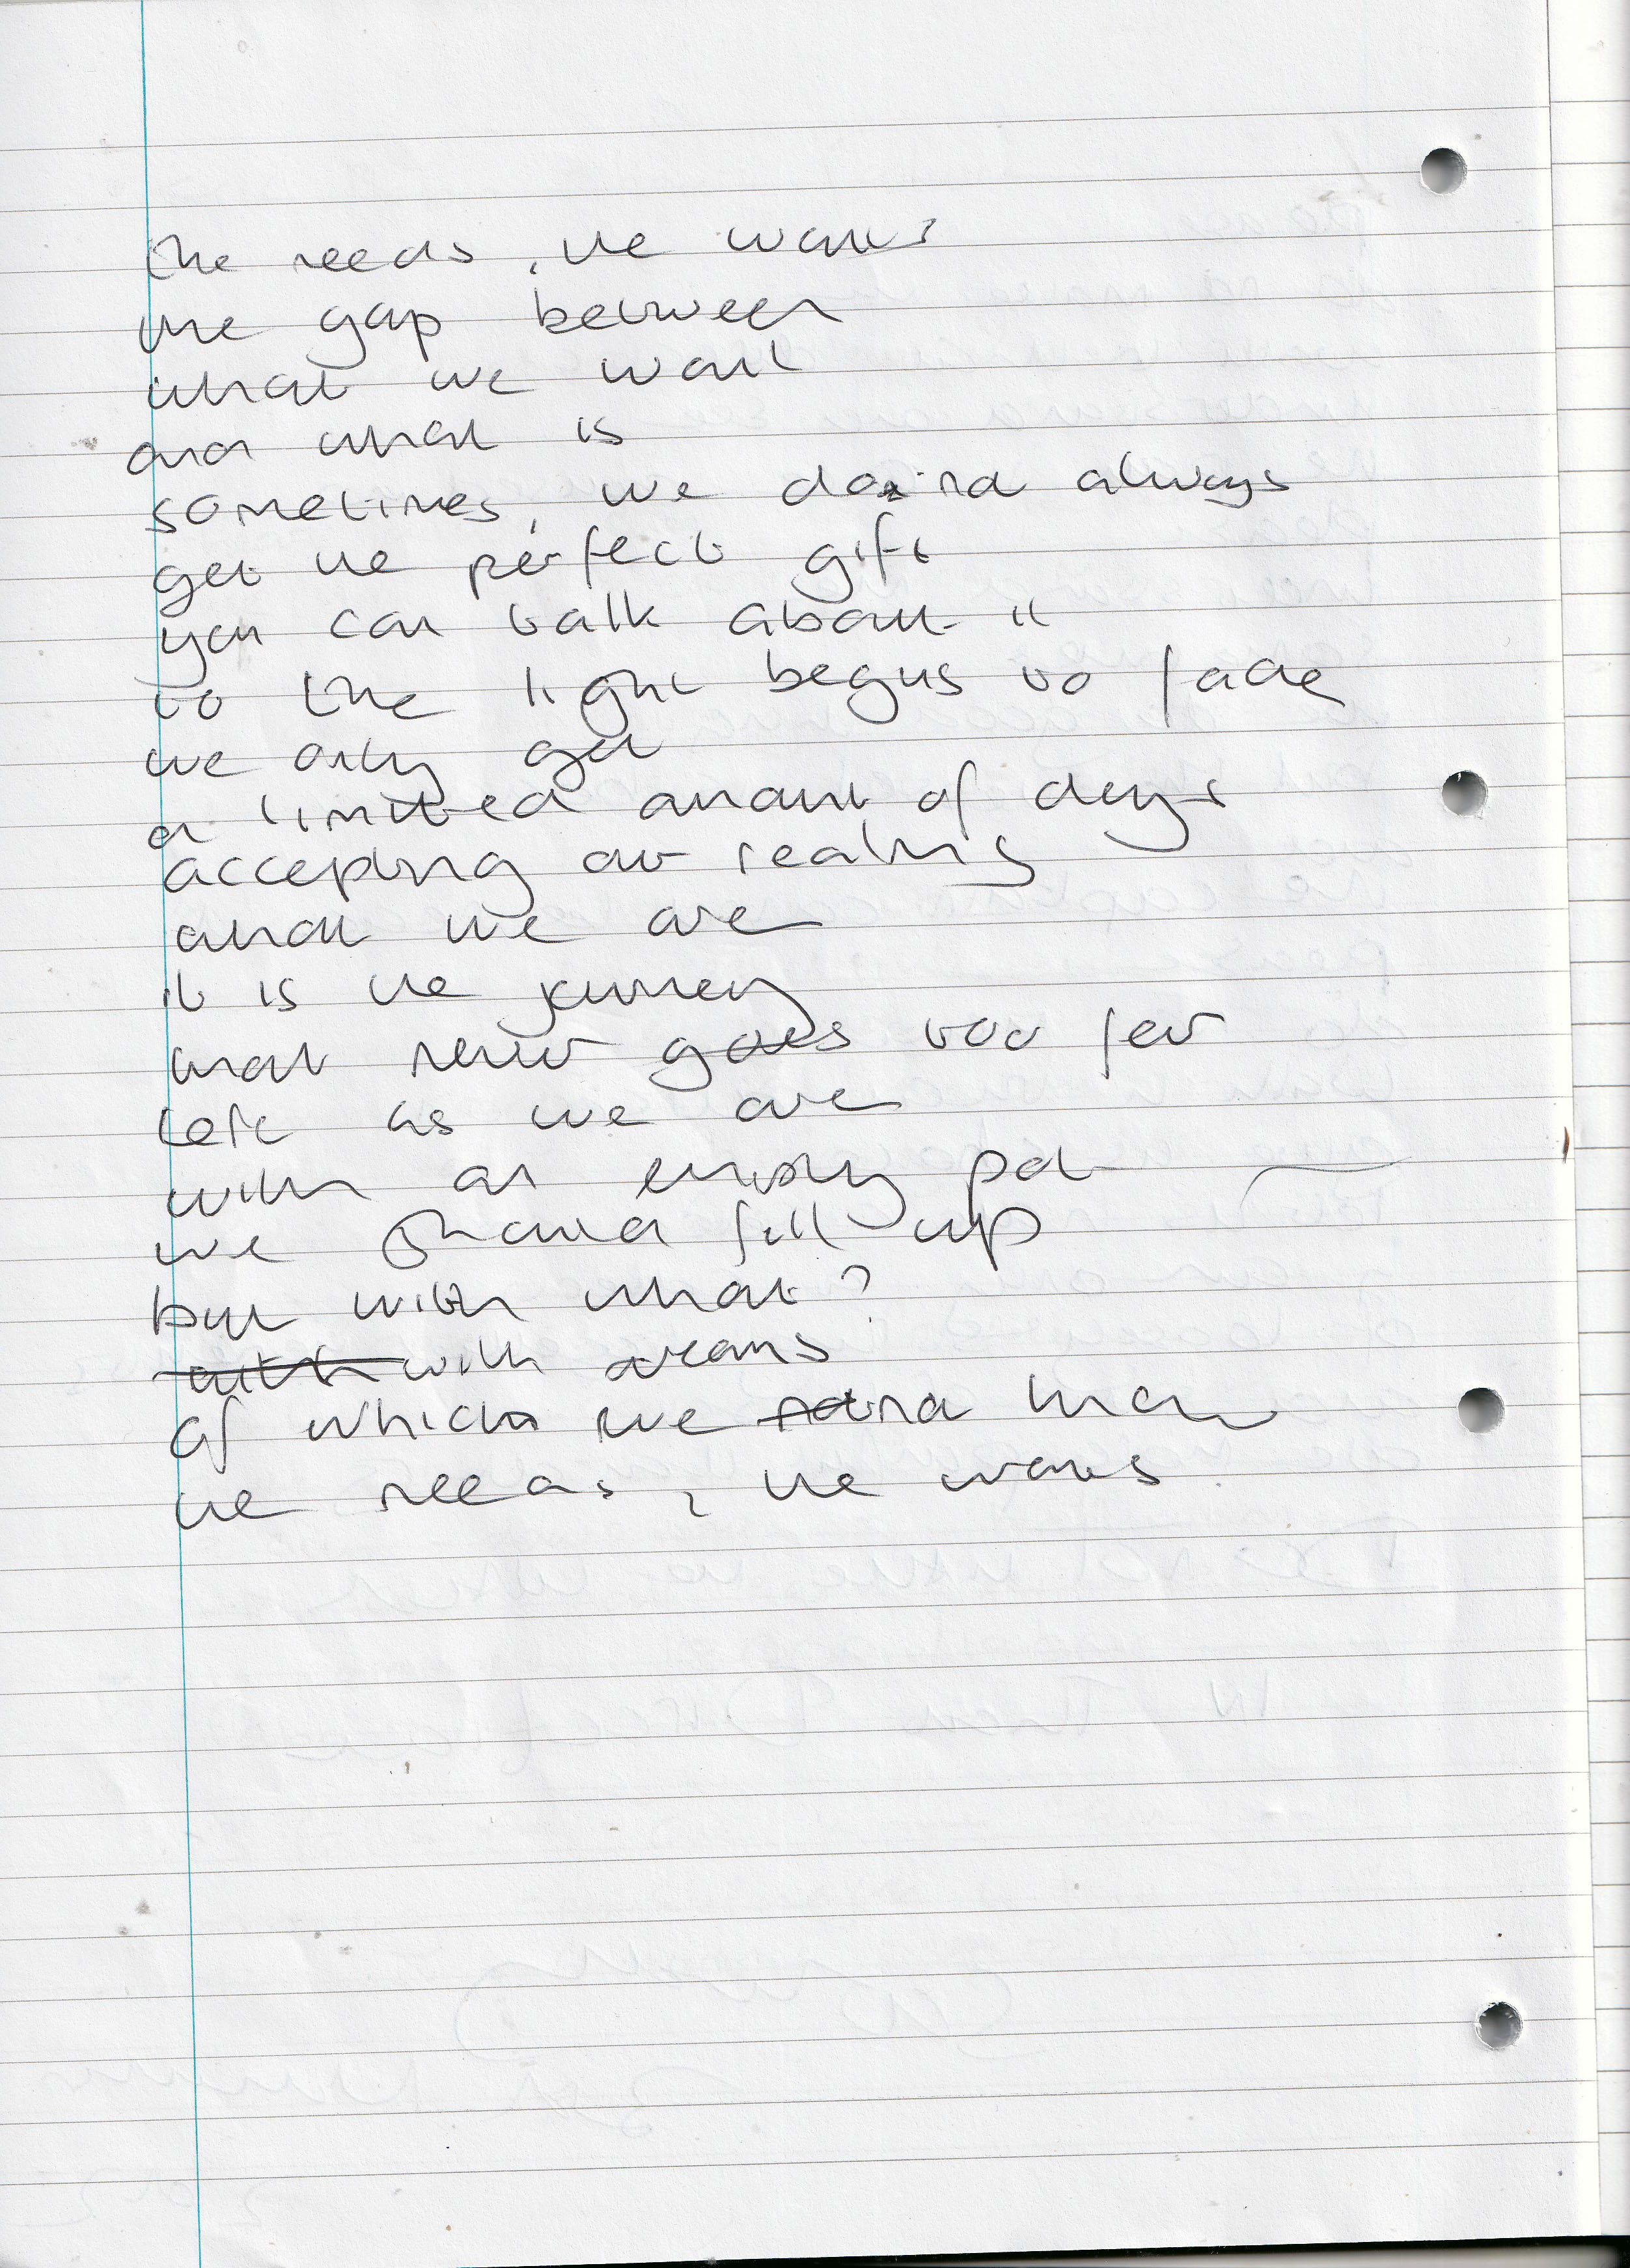 the needs, the wants
the gap between
what we want
and what is
sometimes, we don't always
get the perfect gift
you can talk about it
to the light begins to fade
we only get
a limited amount of days
accepting our reality
what we are
it is the journey
that never goes too far
left as we are
with an empty pot
we should fill up
but with what?
with with dreams
of which we
the needs, the wants